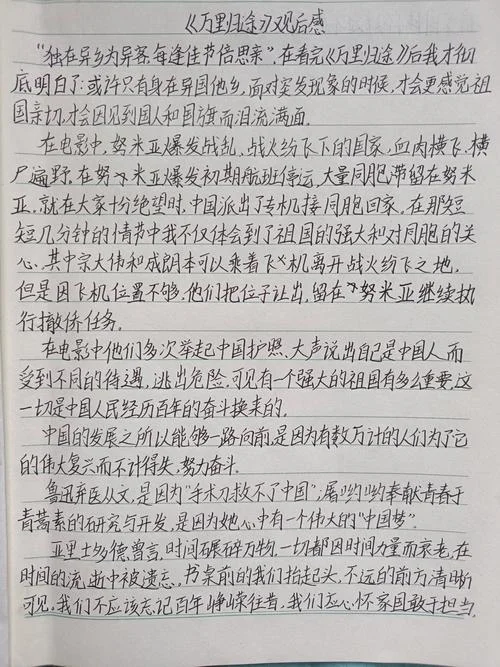 《万里归途》观后感
“独在异乡为异客,每逢佳节倍思亲”,在看完《万里归途》后我才彻
底明白了:或许只有身在异国他乡,面对突发现象的时候,才会更感觉祖
国亲切,才会因见到国人和国旗而泪流满面。
在电影中,努米亚爆发战乱,战火纷飞下的国家,血肉横飞,横
尸遍野。在努米亚爆发初期航班停运,大量同胞滞留在努米
亚,就在大家十分绝望时,中国派出了专机接同胞回家。在那短
短几分钟的情节中我不仅体会到了祖国的强大和对同胞的关
心。其中宗大伟和成朗本可以乘着飞机离开战火纷飞之地,
但是因飞机位置不够,他们把位子让出,留在努米亚继续执
行撤侨任务。
在电影中他们多次举起中国护照、大声说出自己是中国人,而
受到不同的待遇,逃出危险,可见有一个强大的祖国有多么重要,这
一切是中国人民经历百年的奋斗换来的。
中国的发展之所以能够一路向前,是因为有数万计的人们为了它
的伟大复兴而不计得失,努力奋斗。
鲁迅弃医从文,是因为“手术刀救不了中国”;屠呦呦奉献青春于
青蒿素的研究与开发,是因为她心中有一个伟大的“中国梦”。
亚里士多德曾言,时间碾碎万物,一切都因时间力量而衰老,在
时间的流逝中被遗忘。书桌前的我们抬起头,不远的前方清晰
可见,我们不应该忘记百年峥嵘往昔,我们应心怀家国敢于担当。